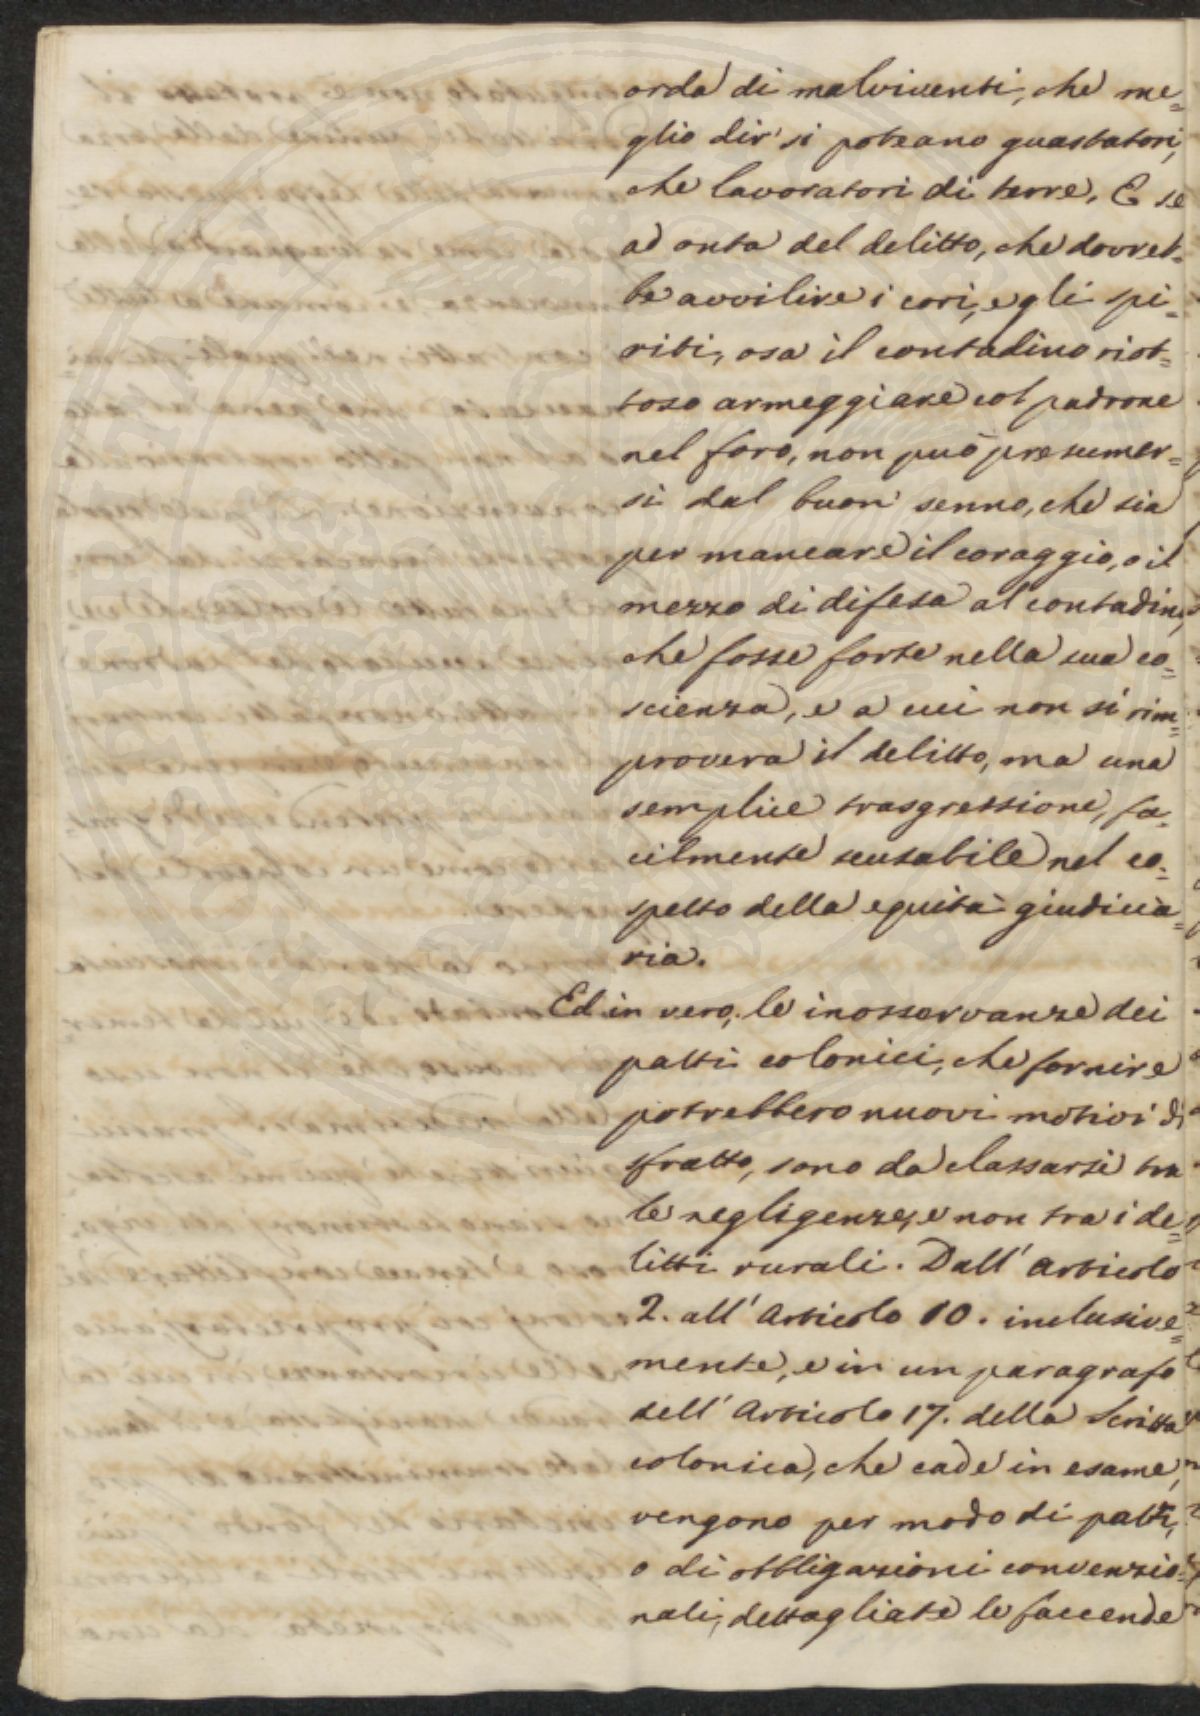 orda di malviventi, che me=
glio dir si poteano guastatori,
che lavoratori di terre. E se
ad onta del delitto, che dovreb=
be avvilire i cori, e gli spi=
riti, osa il contadino riot=
toso armeggiare col padrone
nel foro, non può presumer=
si dal buon senno, che sia
per mancare il coraggio, o il
mezzo di difesa al contadino,
che fosse forte nella sua co=
scienza, e a cui non si rim=
provera il delitto, ma una
semplice trasgressione, fa=
cilmente scusabile nel co=
spetto della equità giudicia=
ria.
Ed in vero, le inosservanze dei
patti colonici, che fornire
potrebbero nuovi motivi di
sfratto, sono da classarsi tra
le negligenze, e non tra i de=
litti rurali. Dall' Articolo
2. all' Articolo 10. inclusive=
mente, e in un paragrafo
dell' Articolo 17. della Scritta
colonica, che cade in esame,
vengono per modo di patti,
o di obbligazioni convenzio=
nali, dettagliate le faccende